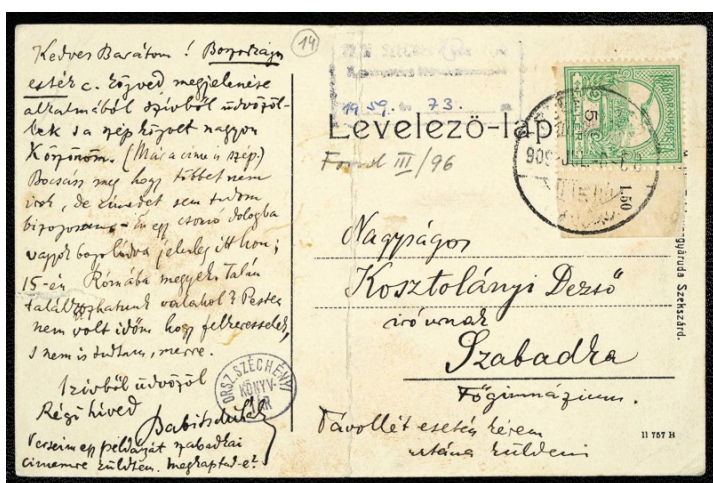 Kedves Barátom! Boszorkányos
esték c. köteted megjelenése
alkalmából szivből üdvözöl-
lek s a szép könyvet nagyon
Köszönöm. (Már a cime is szép.)
Bocsáss meg hogy többet nem
irok, de cimedet sem tudom
bizonyosan — én egy csomó dologba
vagyok bogozódva jelenleg itthon;
15-én Rómába megyek. Talán
találkozhatunk valahol? Pesten
nem volt időm hogy felkeresselek,
s nem is tudtam, merre.
Szivből üdvözöl
Régi hived
Babits Mihály
Verseim egy példányát szabadkai
cimemre küldtem. Megkaptad-e?
14
ORSZ. SZÉCHÉNYI
KÖNYV-
TÁR
1959. 73.
Levelező-lap
Fond III/96
MAGYAR KIR. POSTA
5
1.50
Nagyságos
Kosztolányi Dezső
irónak
Szabadka
Főgimnázium.
Távollét esetén kérem
utána küldeni
Szekszárd.
11 757 H